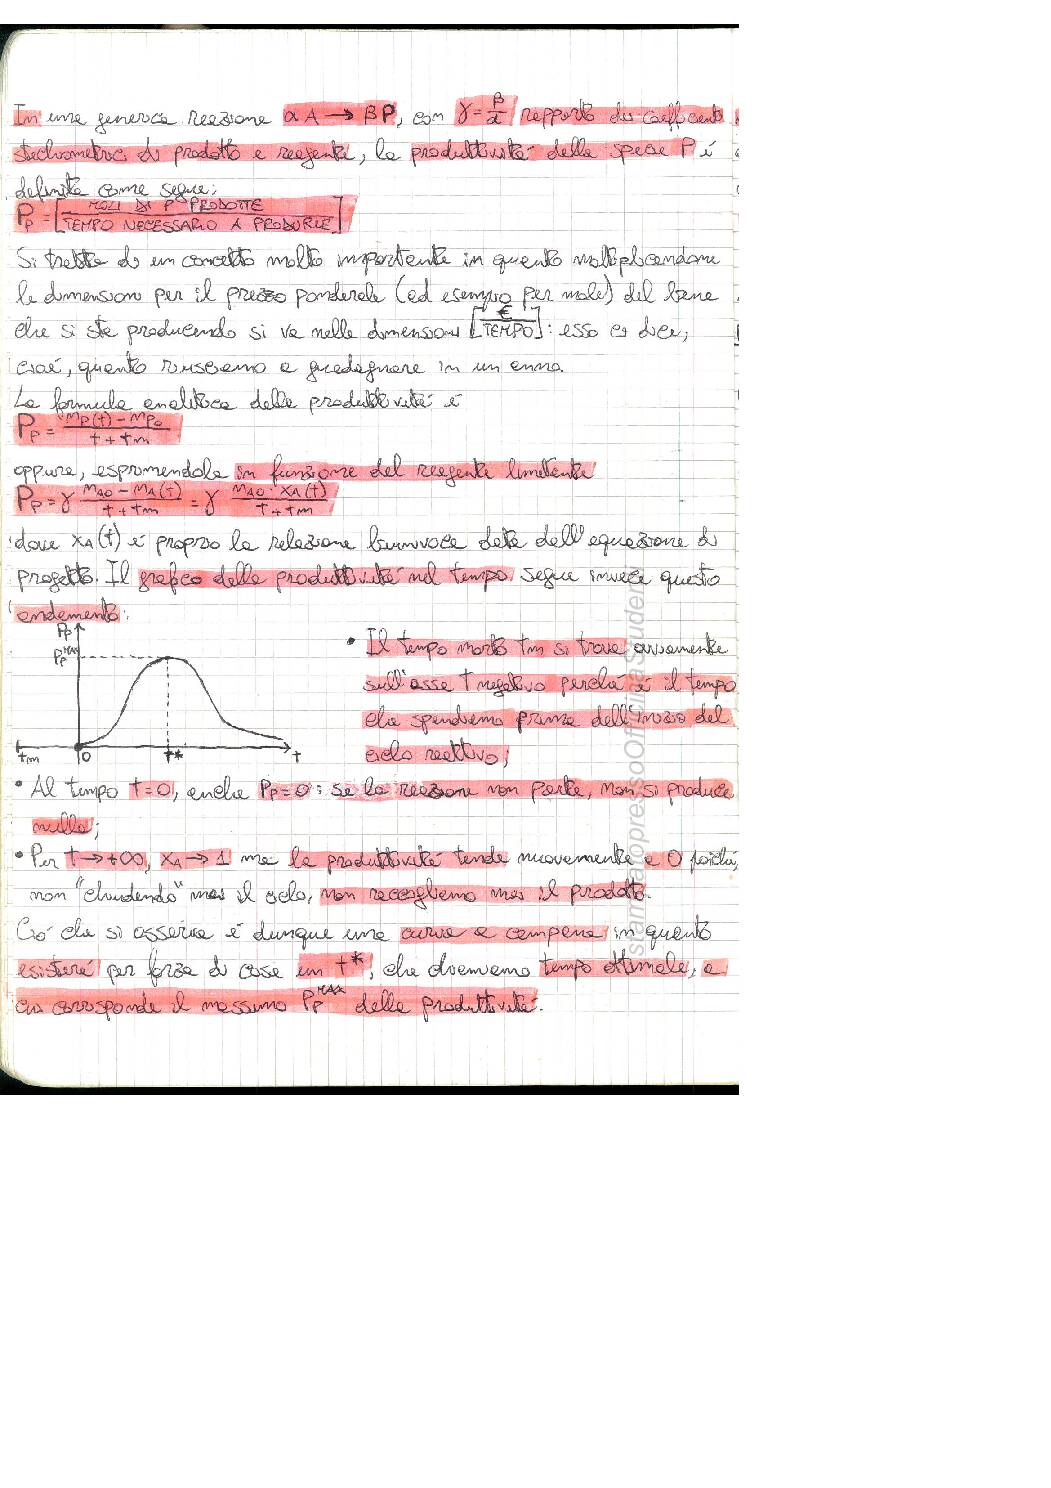 In una generica reazione αA → βP, con γ = β/α rapporto dei coefficienti
stechiometrici di prodotto e reagenti, la produttività della specie P è
definita come segue:
P_P = [MOLI DI P PRODOTTE / TEMPO NECESSARIO A PRODURLE]
Si tratta di un concetto molto importante in quanto moltiplicandone
le dimensioni per il prezzo ponderale (ad esempio per mole) del bene
che si sta producendo si va nelle dimensioni [€ / TEMPO]: esso ci dice,
cioè, quanto riusciamo a guadagnare in un anno.
La formula analitica della produttività è
P_P = (n_P(t) - n_P0) / (t + tm)
oppure, esprimendola in funzione del reagente limitante
P_P = γ (n_A0 - n_A(t)) / (t + tm) = γ (n_A0 · x_A(t)) / (t + tm)
dove x_A(t) è proprio la relazione biunivoca data dall'equazione di
progetto. Il grafico della produttività nel tempo segue invece questo
andamento:
P_P
P_P^MAX
tm 0 t* t
• Il tempo morto tm si trova ovviamente
sull'asse t negativo perché è il tempo
che spendiamo prima dell'inizio del
ciclo reattivo;
• Al tempo t=0, anche P_P=0: se la reazione non parte, non si produce
nulla;
• Per t→+∞, x_A→1 ma la produttività tende nuovamente a 0 poiché,
non "chiudendo" mai il ciclo, non raccogliamo mai il prodotto.
Ciò che si osserva è dunque una curva a campana in quanto
esisterà per forza di cose un t*, che chiamiamo tempo ottimale, a
cui corrisponde il massimo P_P^MAX della produttività.
stampatopressoOfficinaStudenti